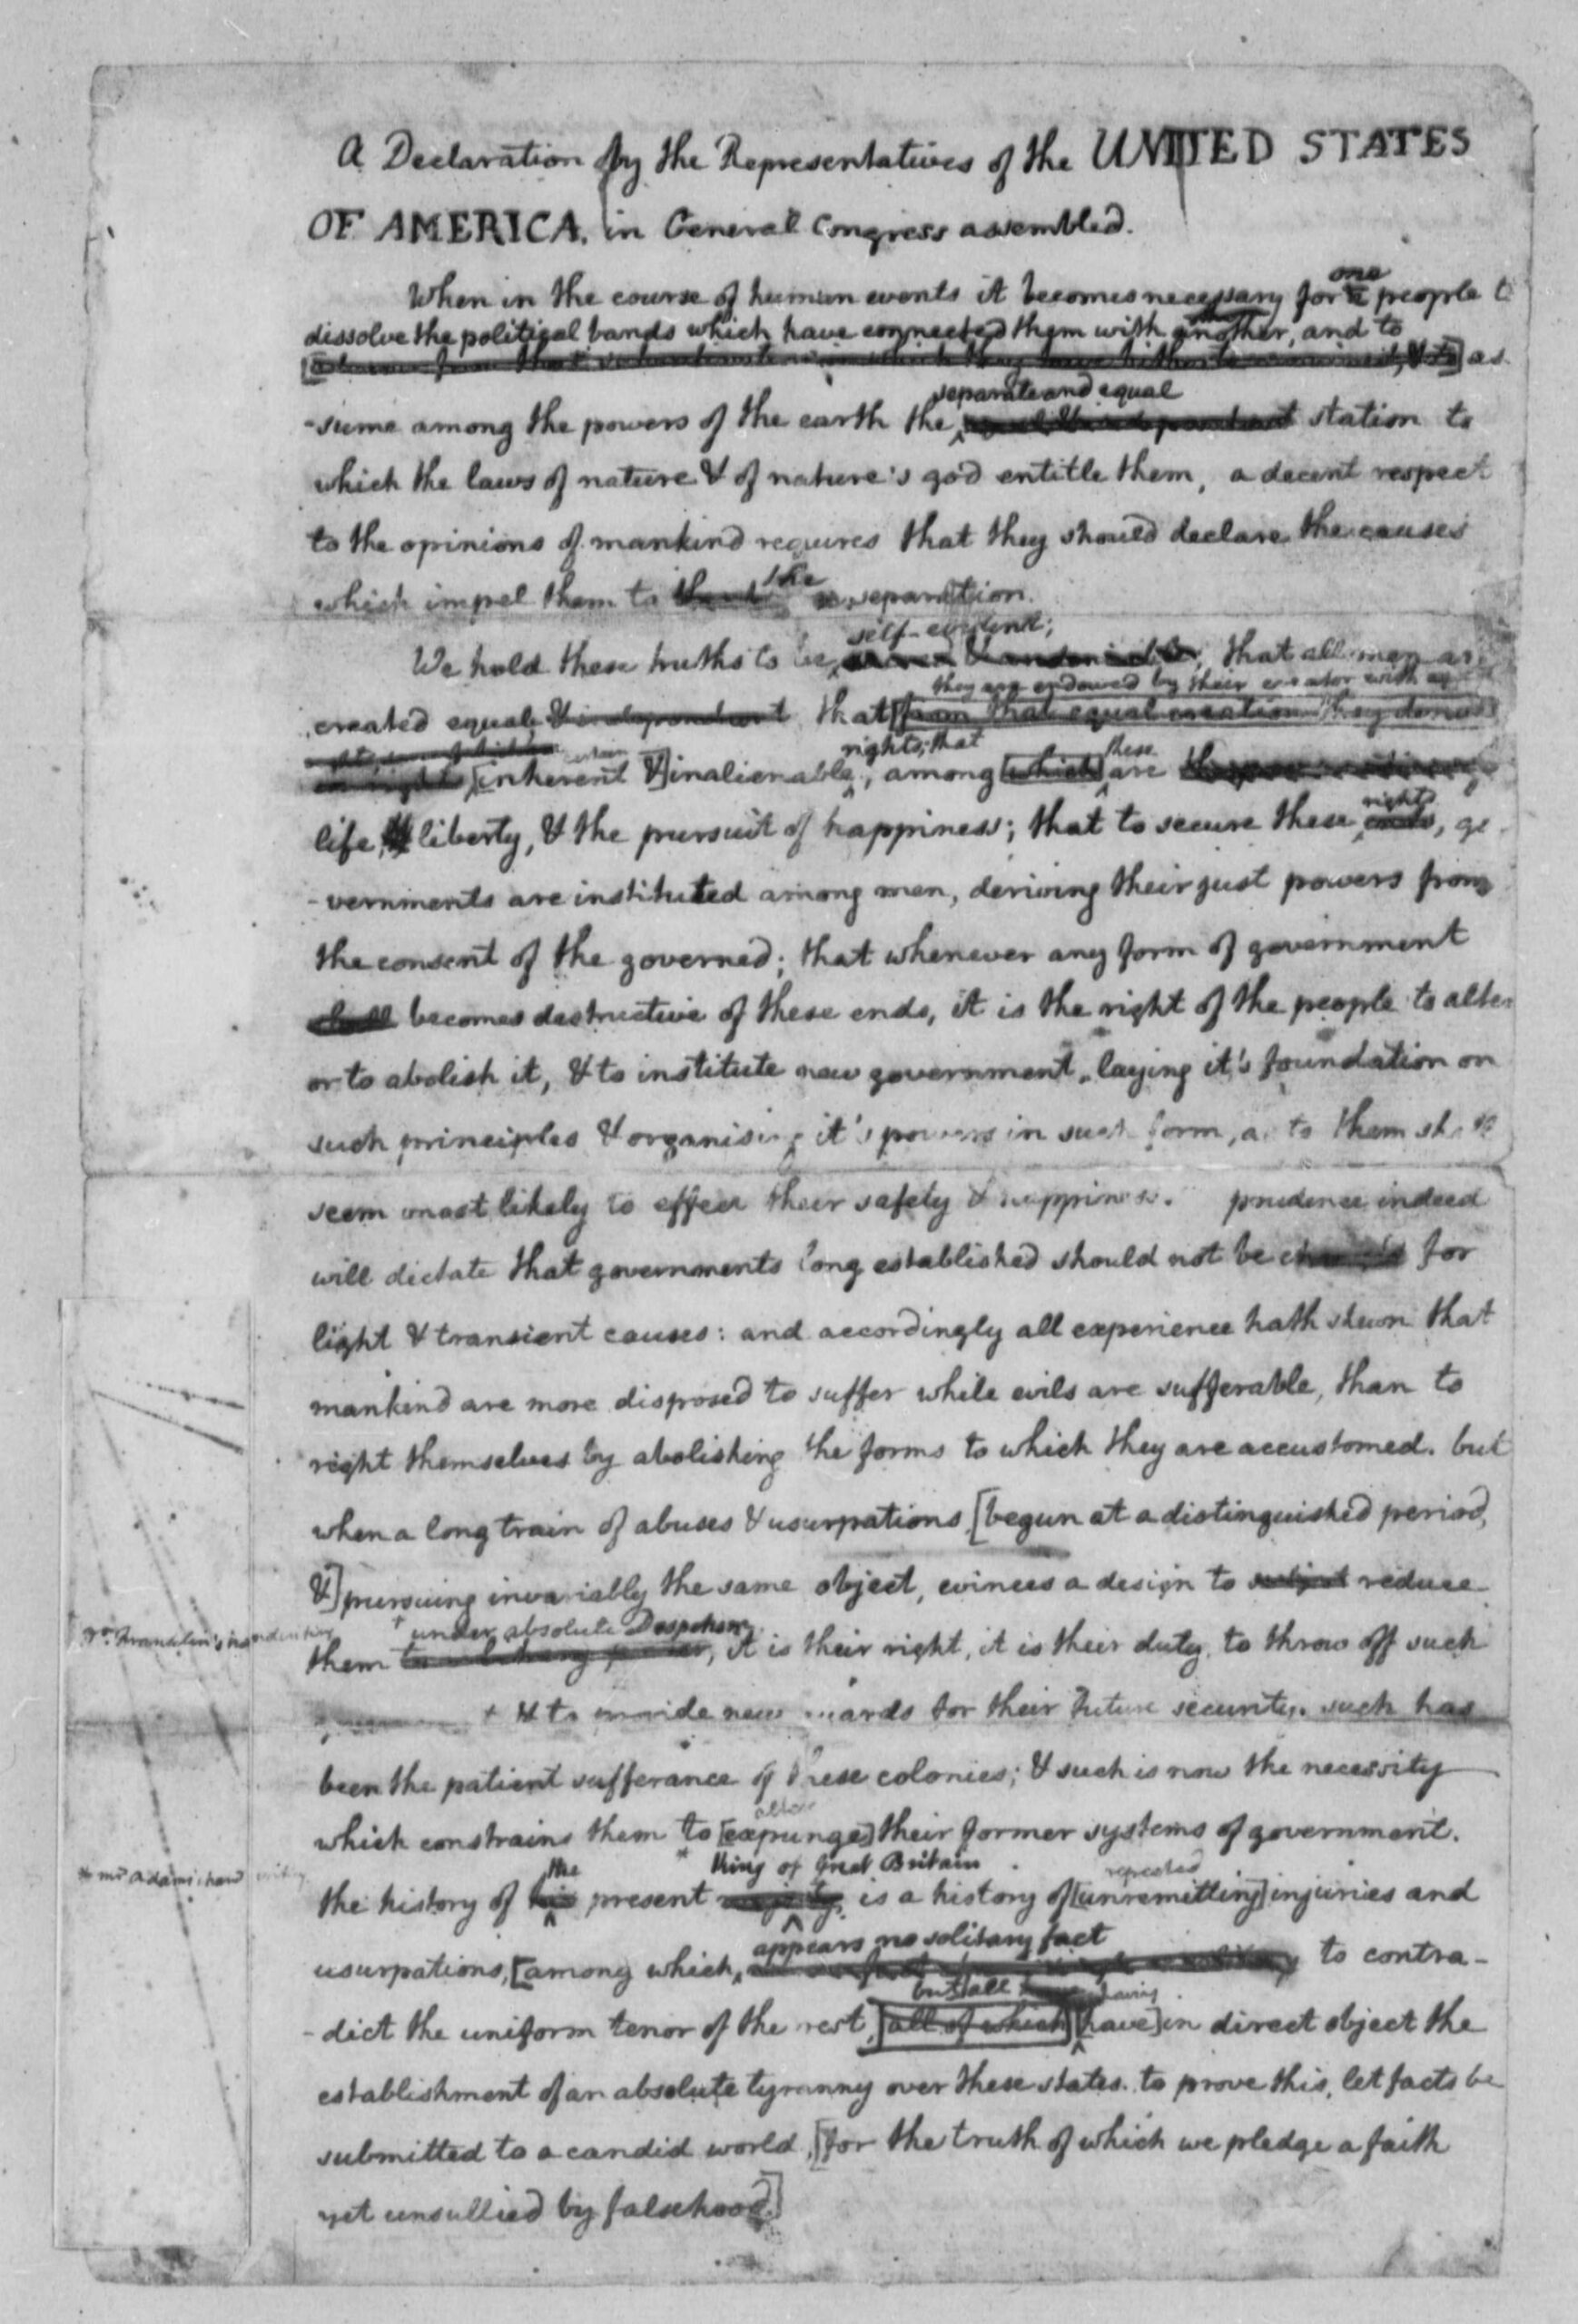 A Declaration by the Representatives of the UNITED STATES
OF AMERICA, in General Congress assembled.
one
When in the course of human events it becomes necessary for a people t
dissolve the political bands which have connected them with another, and to
as
separate and equal
-sume among the powers of the earth the station to
which the laws of nature & of nature's god entitle them, a decent respect
to the opinions of mankind requires that they should declare the causes
the
which impel them to separation.
self-evident;
We hold these truths to be that all men are
they are endowed by their creator with
created equal & independent that [from that equal creation they
certain rights; that these
[inherent &] inalienable, among [which] are
rights
life, liberty, & the pursuit of happiness; that to secure these ends, go
-vernments are instituted among men, deriving their just powers from
the consent of the governed; that whenever any form of government
shall becomes destructive of these ends, it is the right of the people to alter
or to abolish it, & to institute new government, laying it's foundation on
such principles & organising it's powers in such form, as to them shall
seem most likely to effect their safety & happiness. prudence indeed
will dictate that governments long established should not be changed for
light & transient causes: and accordingly all experience hath shewn that
mankind are more disposed to suffer while evils are sufferable, than to
right themselves by abolishing the forms to which they are accustomed. but
when a long train of abuses & usurpations, [begun at a distinguished period,
&] pursuing invariably the same object, evinces a design to subject reduce
Dr. Franklin's handwriting
+ under absolute Despotism
them to it is their right, it is their duty, to throw off such
+ & to provide new guards for their future security. such has
been the patient sufferance of these colonies; & such is now the necessity
alter
which constrains them to [expunge] their former systems of government.
* mr Adams' hand writing
the * king of Great Britain repeated
the history of his present majesty, is a history of [unremitting] injuries and
appears no solitary fact
usurpations, [among which, to contra-
but all having
-dict the uniform tenor of the rest, [all of which] [have] in direct object the
establishment of an absolute tyranny over these states. to prove this, let facts be
submitted to a candid world, [for the truth of which we pledge a faith
yet unsullied by falsehood.]